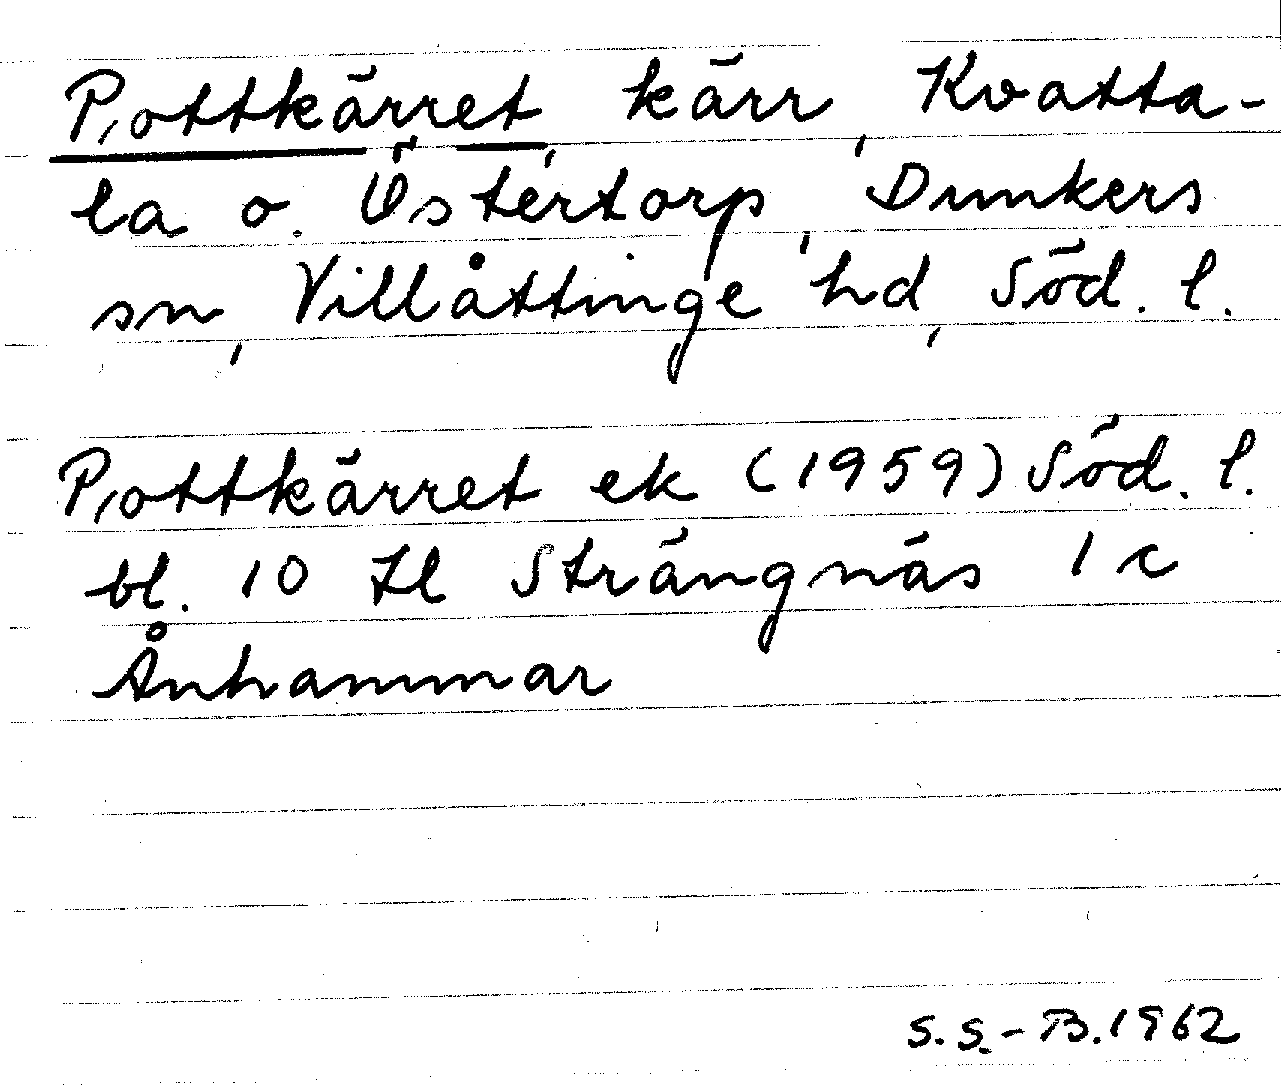 Pottkärret, kärr, Kvatta-
la o. Östertorp, Dunkers
sn, Villåttinge hd, Söd. l.
Pottkärret ek (1959) Söd. l.
bl. 10 tl Strängnäs 1 c
Ånhammar
S.S.-B. 1962